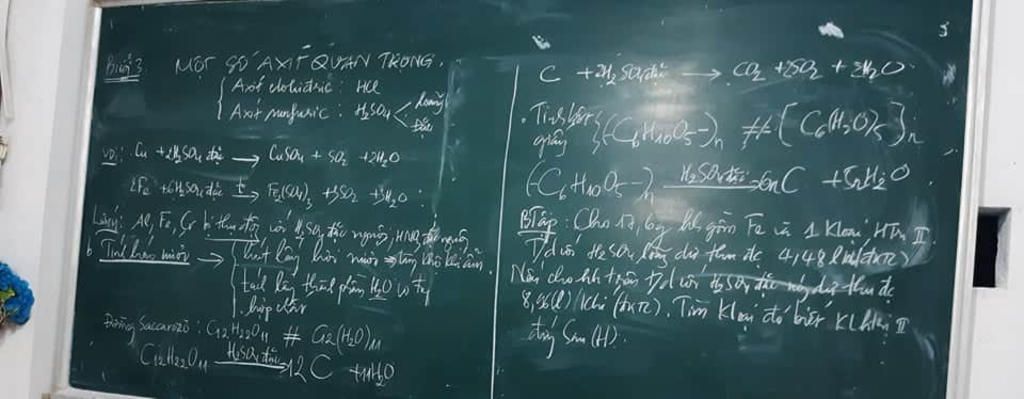 Buổi 3. MỘT SỐ AXIT QUAN TRỌNG.
Axit clohiđric : HCl
Axit sunfuric : H2SO4 < loãng
đặc
VD: Cu + 2H2SO4 đặc → CuSO4 + SO2 + 2H2O
2Fe + 6H2SO4 đặc t→ Fe2(SO4)3 + 3SO2 + 6H2O
Lưu ý: Al, Fe, Cr bị thụ động với H2SO4 đặc nguội, HNO3 đặc nguội
b Tính háo nước → hút lấy hơi nước → làm khô khí ẩm.
tách lấy thành phần H2O có
hợp chất
Đường Saccarozơ : C12H22O11 # C12(H2O)11
C12H22O11 H2SO4 đặc→ 12C + 11H2O
C + 2H2SO4 đặc → CO2 + 2SO2 + 2H2O
. Tinh bột
giấy {(-C6H10O5-)n # [C6(H2O)5]n
(-C6H10O5-)n H2SO4 đặc→ 6nC + 5nH2O
BTập : Cho hh gồm Fe và 1 kloại HTrị II
T/d với H2SO4 loãng dư thu đc 4,48 lít (đktc)
Nếu cho hh trên t/d với H2SO4 đặc nóng dư thu đc
8,96(l) khí (đktc). Tìm Kloại đó biết KL htrị II
đứng sau (H).